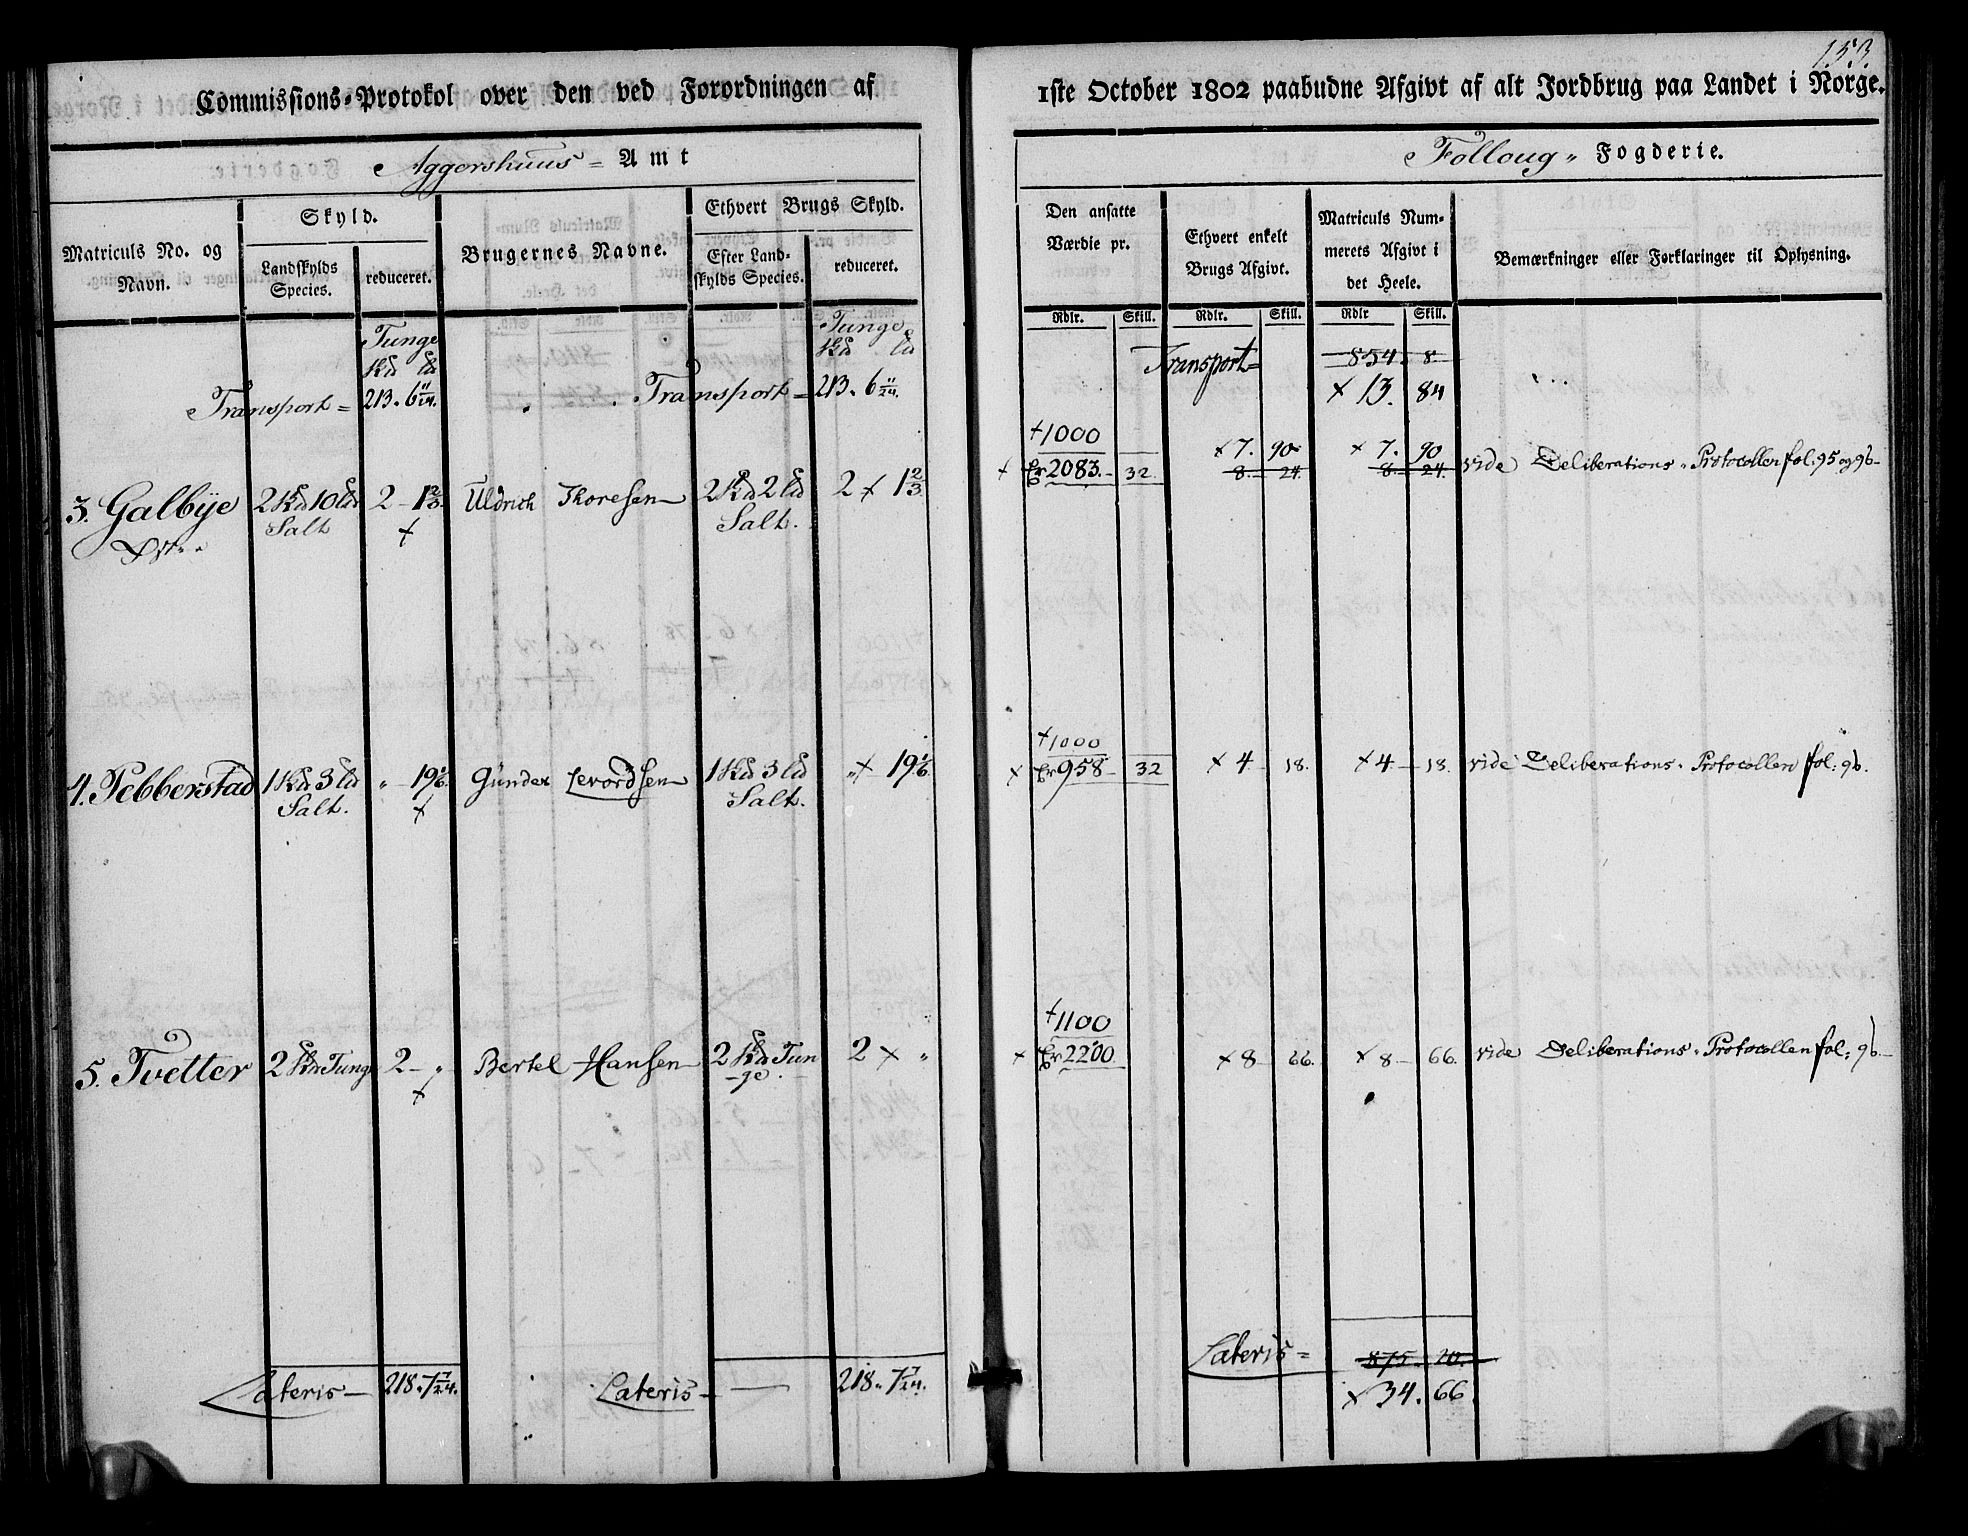 Commissions-Protokol over den ved Forordningen af
Aggershuus Amt
Matriculs No. og Navn.
Skyld.
Landskylds Species.
reduceret.
Brugernes Navne.
Ethvert Brugs Skyld.
Efter Landskylds Species.
reduceret.
Tunge
Tunge
Transport = 213. 6 11/24. Transport = 213. 6 11/24.
3. Galbye 2 10 2 - 1 2/3. Uldrich Thoresen 2 2 2 x 1 2/3.
Salt x Salt.
4. Pebberstad 1 3 „ - 19 1/6. Gunder Levordsen 1 3 „ x 19 1/6.
Salt. x Salt.
5. Tvetter 2 Tunge 2 - „ Bertel Hansen 2 Tun 2 x „
x ge.
Lateris - 218. 7 7/24. Lateris - 218. 7 7/24.
153.
1ste October 1802 paabudne Afgivt af alt Jordbrug paa Landet i Norge.
Folloug „ Fogderie.
Den ansatte Værdie pr.
Ethvert enkelt Brugs Afgivt.
Matriculs Nummerets Afgivt i det Heele.
Bemærkninger eller Forklaringer til Oplysning.
Rdlr. Skill. Rdlr. Skill. Rdlr Skill.
Transport = 854. 8.
x 13. 84
+1000 x 7. 90 x 7. 90
x 2083. - 32. 8. - 24. 8. - 24. vide Deliberations - Protocollen fol: 95 og 96 -
+1000
x 958 - 32 x 4 - 18. x 4 - 18. vide Deliberations - Protocollen fol: 96.
+1100
x 2200. x 8 - 66. x 8 - 66. vide Deliberations - Protocollen fol: 96 -
Lateris = 875. 20.
x 34. 66.